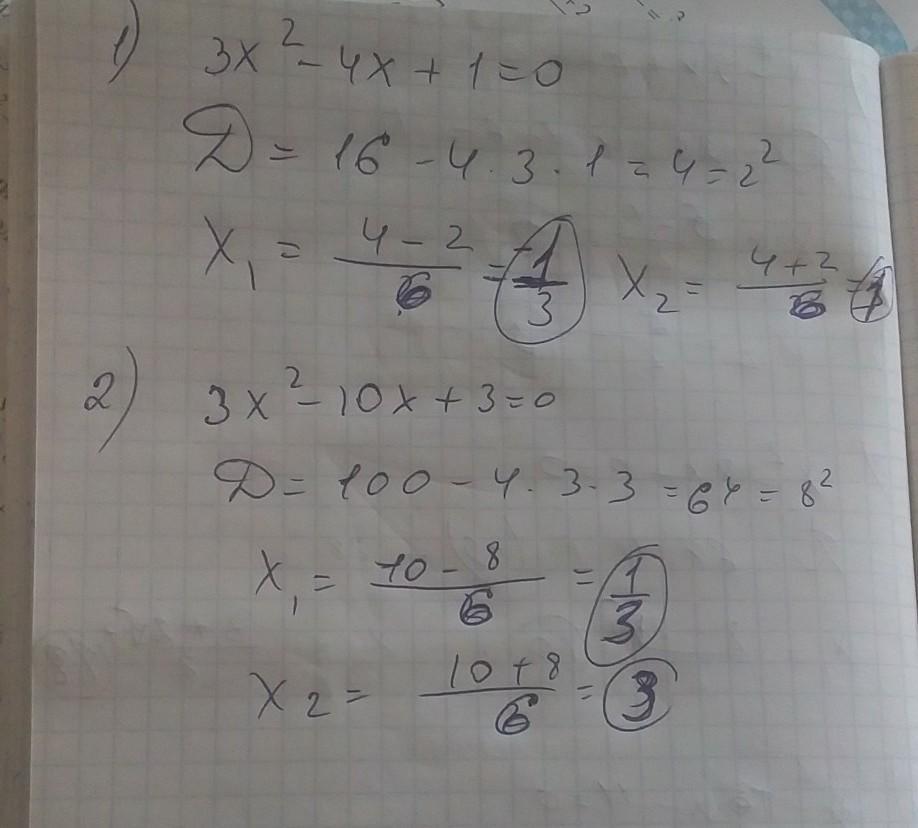 1) 3x² - 4x + 1 = 0
D = 16 - 4 · 3 · 1 = 4 = 2²
x₁ = (4 - 2)/6 = 1/3 x₂ = (4 + 2)/6 = 1
2) 3x² - 10x + 3 = 0
D = 100 - 4 · 3 · 3 = 64 = 8²
x₁ = (10 - 8)/6 = 1/3
x₂ = (10 + 8)/6 = 3